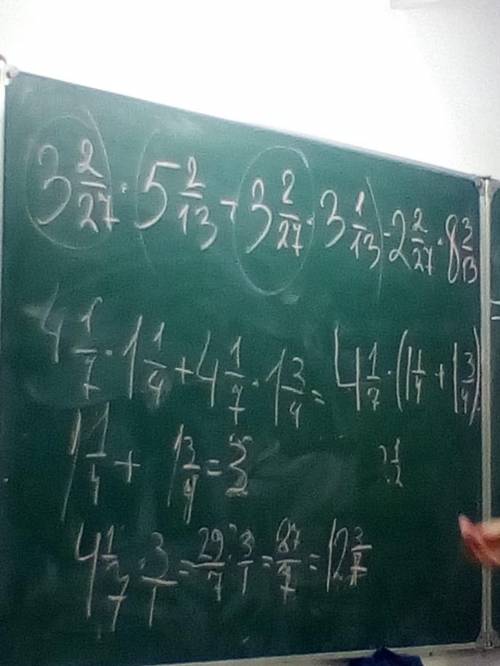 3 2/27 · 5 2/13 + 3 2/27 · 3 1/13 - 2 2/27 · 8 3/13
4 1/7 · 1 1/4 + 4 1/7 · 1 3/4 = 4 1/7 · (1 1/4 + 1 3/4)
1 1/4 + 1 3/4 = 3
4 1/7 · 3/1 = 29/7 · 3/1 = 87/7 = 12 3/7